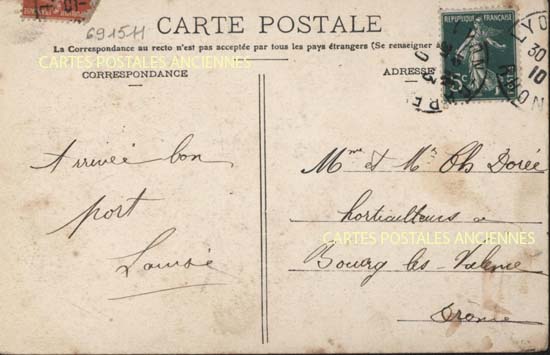 691511
CARTE POSTALE
La Correspondance au recto n'est pas acceptée par tous les pays étrangers (Se renseigner à
CARTES POSTALES ANCIENNES
CORRESPONDANCE
ADRESSE
REPUBLIQUE FRANÇAISE
5c
LYON
30
10
RHONE
Arrivée bon
port
Louise
Mme et Mr Ch Dorée
horticulteurs a
CARTES POSTALES ANCIENNES
Bourg les Valence
Drome